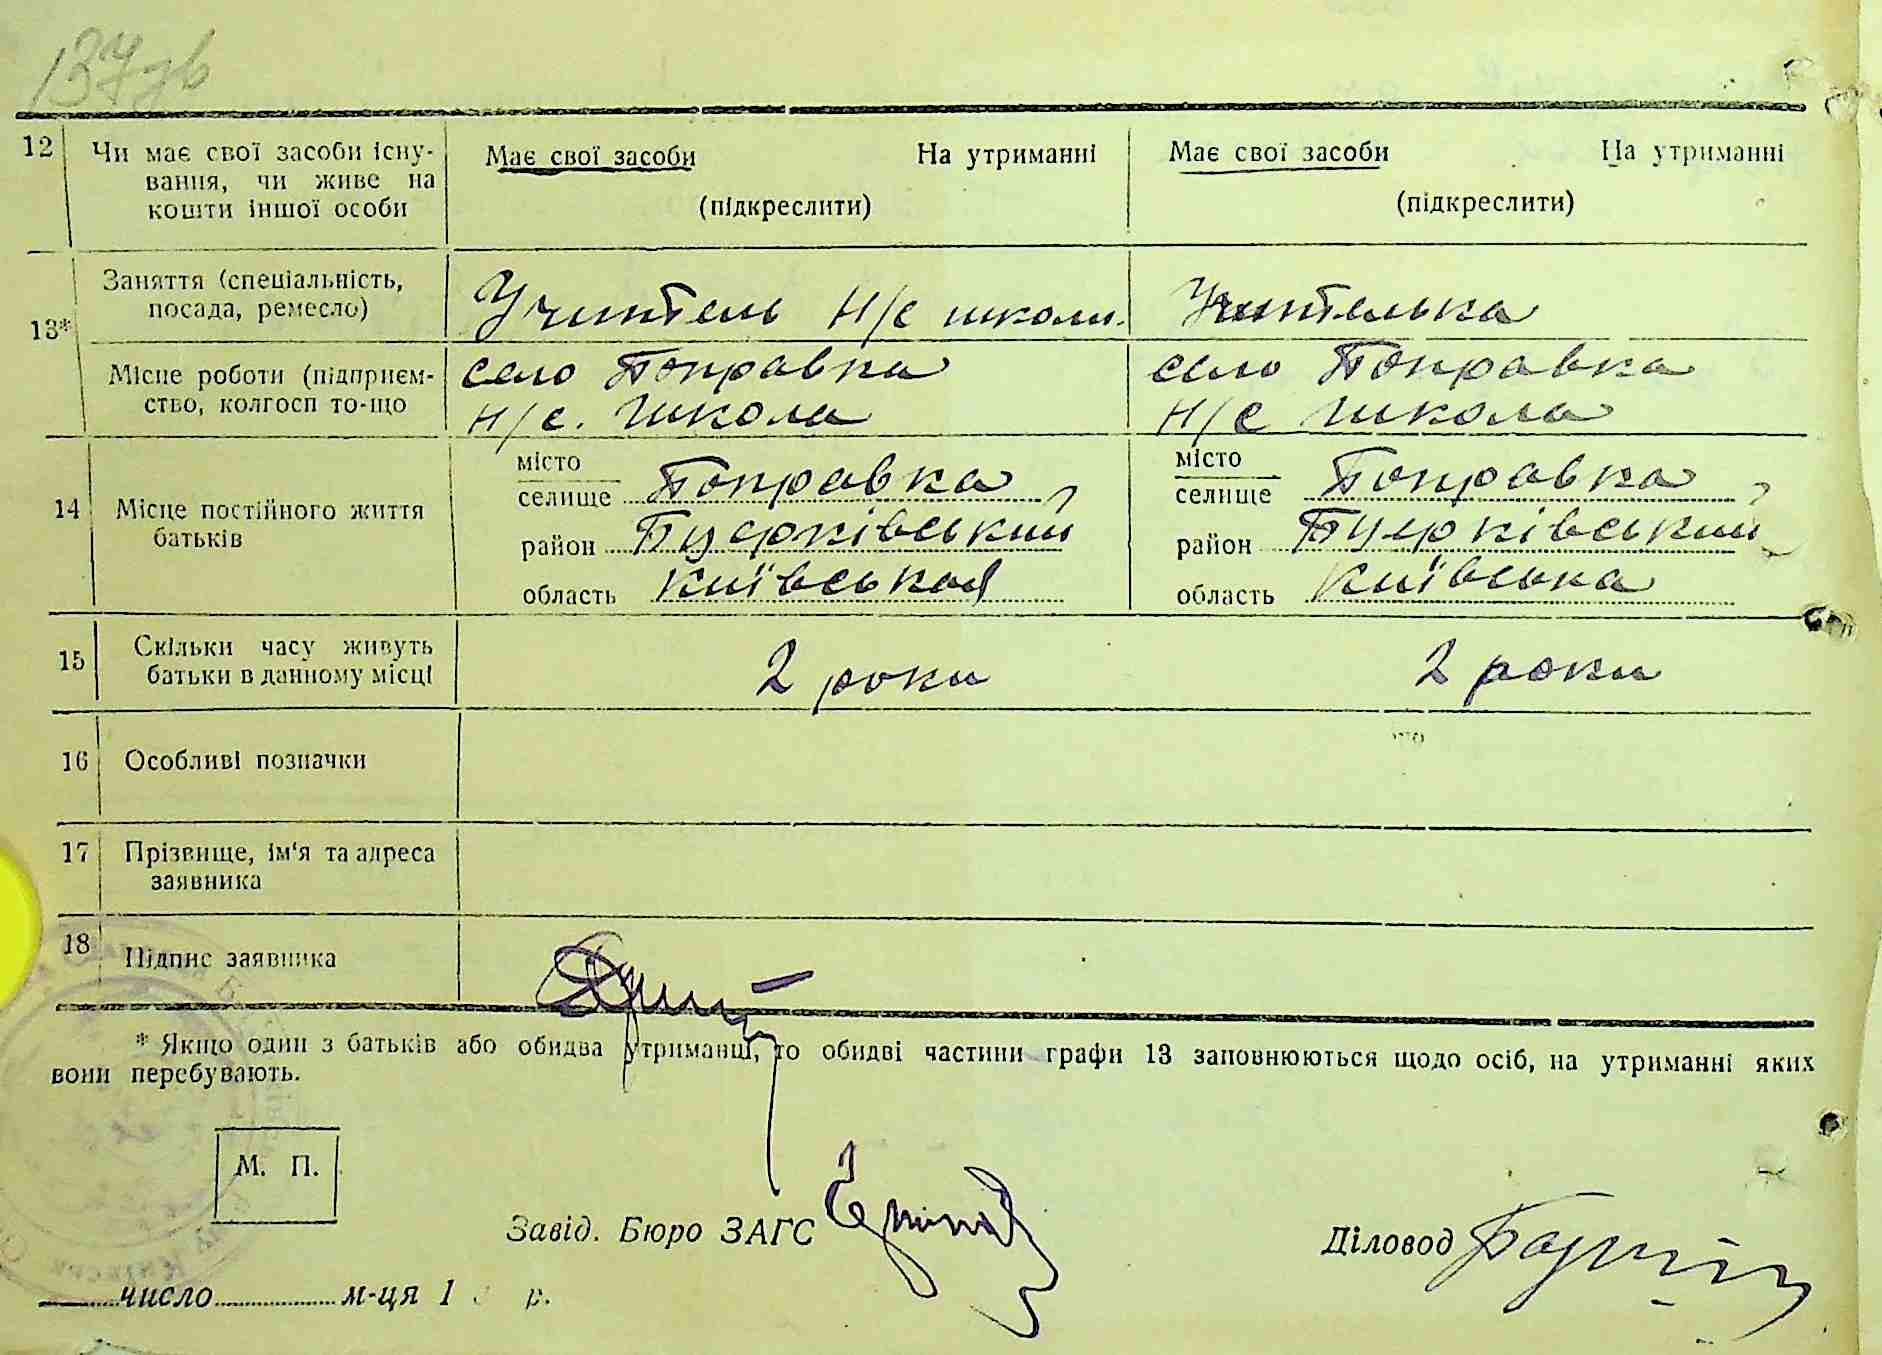 137зв
12 Чи має свої засоби існу-
вання, чи живе на
кошти іншої особи
Має свої засоби На утриманні
(підкреслити)
Має свої засоби На утриманні
(підкреслити)
13*
Заняття (спеціальність,
посада, ремесло)
Учитель Н/С школи.
Учителька
Місце роботи (підприєм-
ство, колгосп то-що
село Поправка
Н/С. школа
село Поправка
Н/С школа
14 Місце постійного життя
батьків
місто
селище Поправка
район Буерківський
область Київськая
місто
селище Поправка
район Буерківський
область Київська
15 Скільки часу живуть
батьки в данному місці
2 роки
2 роки
16 Особливі позначки
17 Прізвище, ім'я та адреса
заявника
18 Підпис заявника
* Якщо один з батьків або обидва утриманці, то обидві частини графи 13 заповнюються щодо осіб, на утриманні яких
вони перебувають.
М. П.
Завід. Бюро ЗАГС
Діловод
число м-ця 1 р.